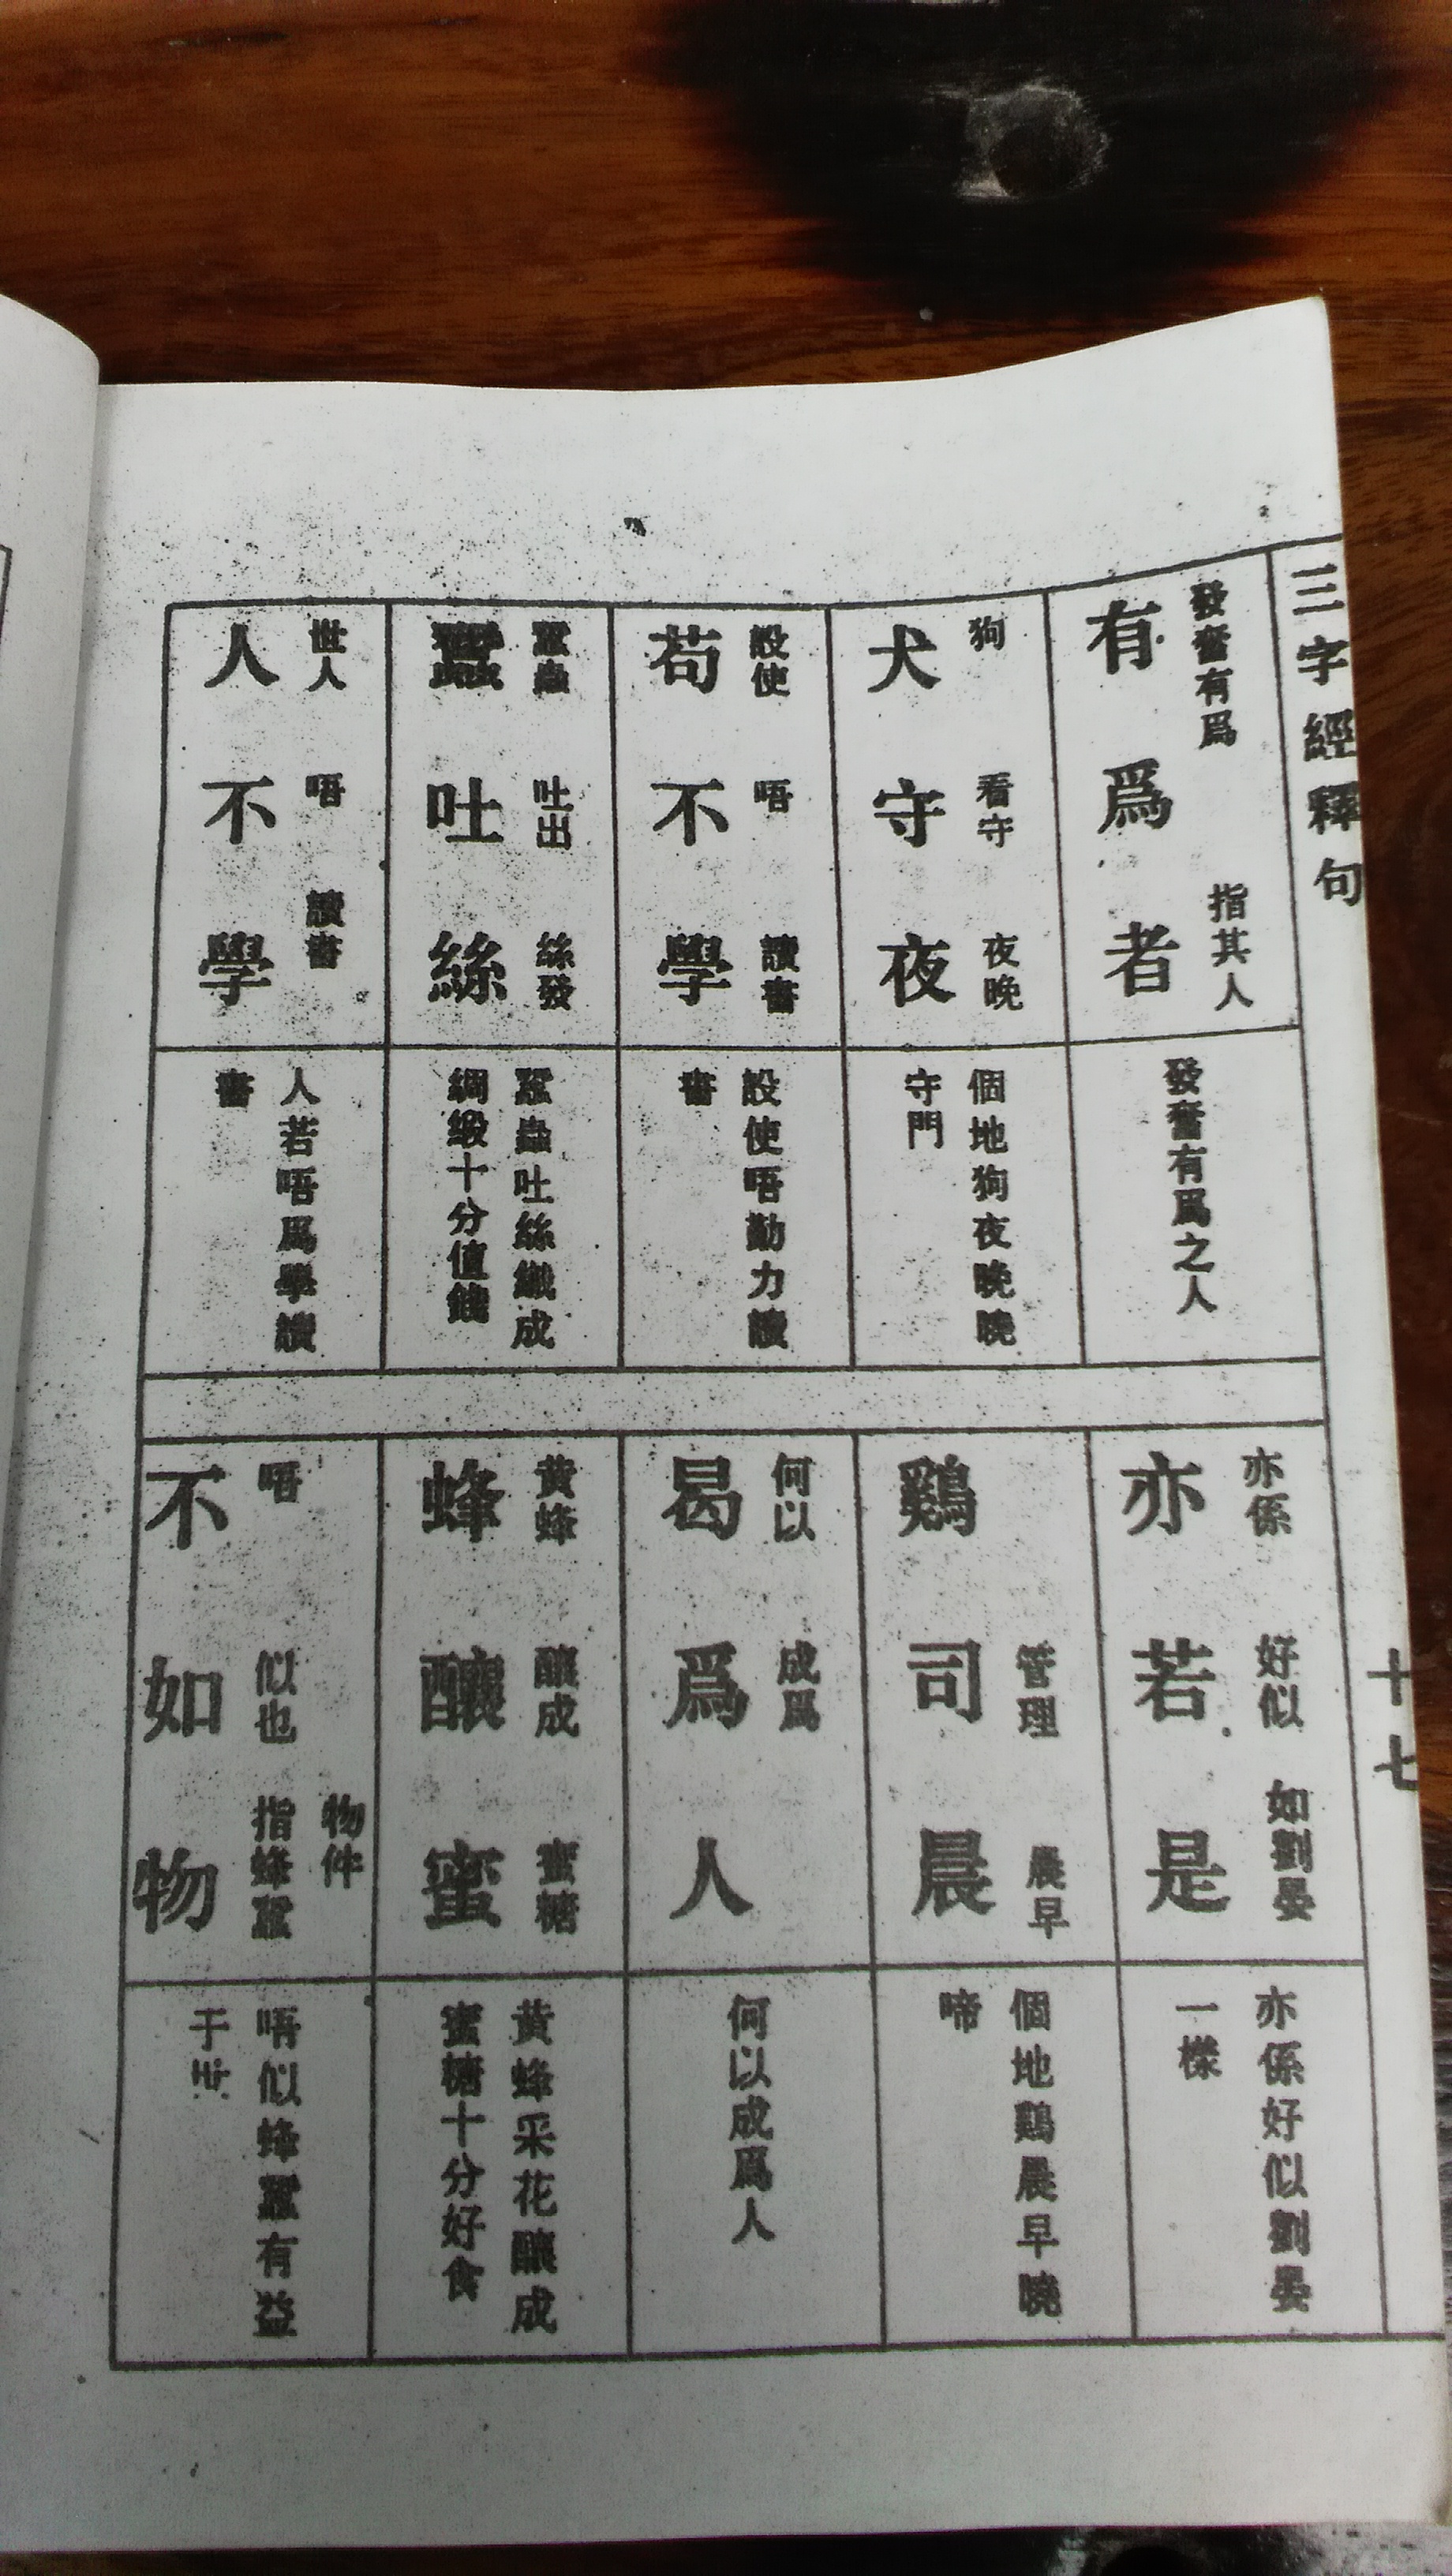 三字經釋句
十七
發奮有爲 指其人
有爲者
發奮有爲之人
亦係 好似 如劉晏
亦若是
亦係好似劉晏
一樣
狗 看守 夜晚
犬守夜
個地狗夜晚曉
守門
管理 晨早
鷄司晨
個地鷄晨早曉
啼
設使 唔 讀書
苟不學
設使唔勤力讀
書
何以 成爲
曷爲人
何以成爲人
蠶蟲 吐出 絲發
蠶吐絲
蠶蟲吐絲織成
綢緞十分值錢
黃蜂 釀成 蜜糖
蜂釀蜜
黃蜂采花釀成
蜜糖十分好食
世人 唔 讀書
人不學
人若唔爲學讀
書
物件
唔 似也 指蜂蠶
不如物
唔似蜂蠶有益
于